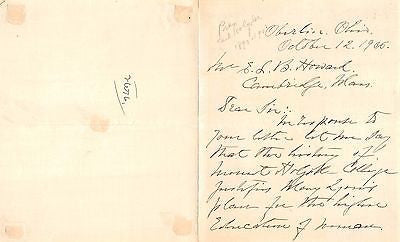 Oberlin, Ohio.
October 12, 1900.
Mr E. L. B. Howard.
Cambridge, Mass.
Dear Sir:.
In response to
your letter let me say
that the history of
Mount Holyoke College
justifies Mary Lyon's
plan for the higher
Education of women